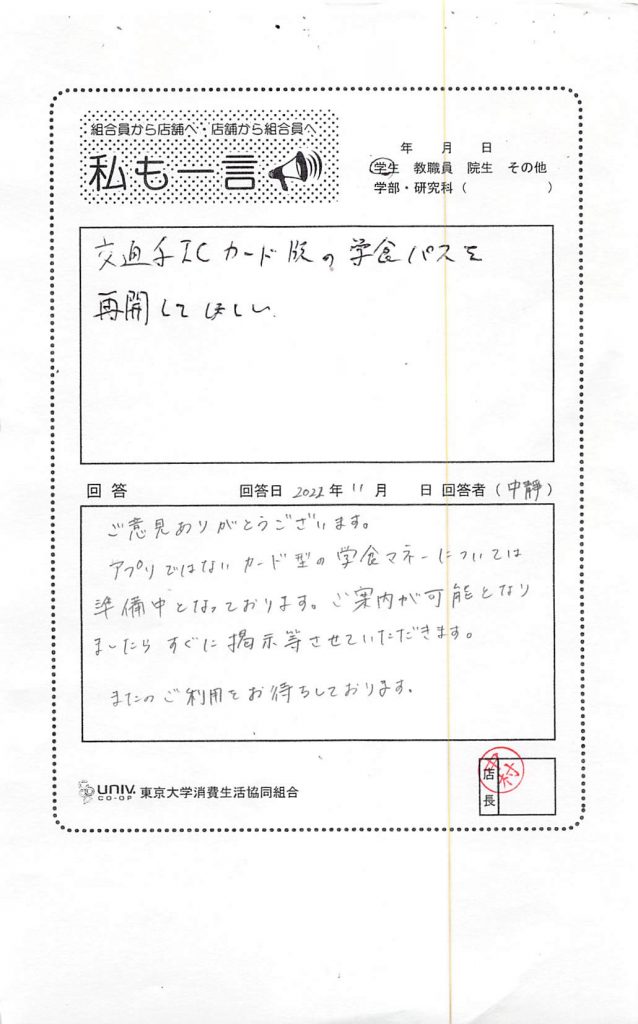 組合員から店舗へ・店舗から組合員へ
私も一言
年 月 日
学生 教職員 院生 その他
学部・研究科( )
交通系ICカード版の学食パスを
再開してほしい.
回答 回答日 2022年11月 日 回答者(中静)
ご意見ありがとうございます。
アプリではないカード型の学食マネーについては
準備中となっております。ご案内が可能となり
ましたらすぐに掲示等させていただきます。
またのご利用をお待ちしております。
UNIV.
CO-OP
東京大学消費生活協同組合
店長
中村